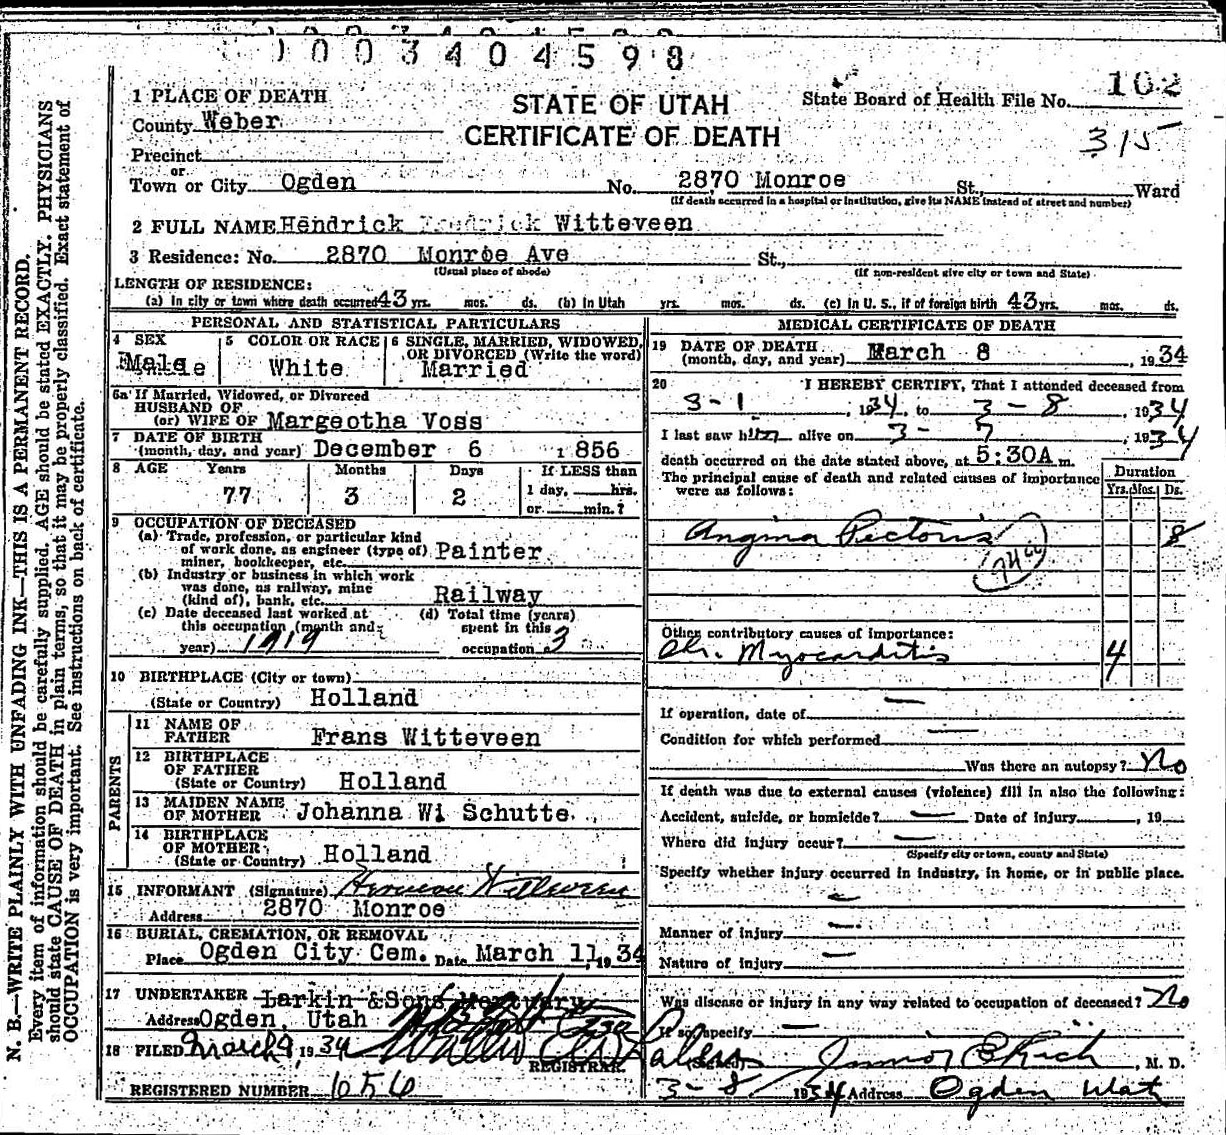 1003404598
1 PLACE OF DEATH
STATE OF UTAH
CERTIFICATE OF DEATH
State Board of Health File No. 102
315
County Weber
Precinct
or
Town or City Ogden No. 2870 Monroe St., Ward
(If death occurred in a hospital or institution, give its NAME instead of street and number)
2 FULL NAME Hendrick Fredrick Witteveen
3 Residence: No. 2870 Monroe Ave St.,
(Usual place of abode) (If non-resident give city or town and State)
LENGTH OF RESIDENCE:
(a) In city or town where death occurred 43 yrs. mos. ds. (b) In Utah yrs. mos. ds. (c) In U. S., if of foreign birth 43 yrs. mos. ds.
PERSONAL AND STATISTICAL PARTICULARS
4 SEX 5 COLOR OR RACE 6 SINGLE, MARRIED, WIDOWED,
OR DIVORCED (Write the word)
Male White Married
6a If Married, Widowed, or Divorced
HUSBAND OF
(or) WIFE OF Margeotha Voss
7 DATE OF BIRTH
(month, day, and year) December 6 1856
8 AGE Years Months Days If LESS than
1 day, hrs.
or min.?
77 3 2
9 OCCUPATION OF DECEASED
(a) Trade, profession, or particular kind
of work done, as engineer (type of) Painter
miner, bookkeeper, etc.
(b) Industry or business in which work
was done, as railway, mine
(kind of), bank, etc. Railway
(c) Date deceased last worked at
this occupation (month and
year) 1919
(d) Total time (years)
spent in this
occupation 3
10 BIRTHPLACE (City or town)
(State or Country) Holland
PARENTS
11 NAME OF
FATHER Frans Witteveen
12 BIRTHPLACE
OF FATHER
(State or Country) Holland
13 MAIDEN NAME
OF MOTHER Johanna Wi Schutte
14 BIRTHPLACE
OF MOTHER
(State or Country) Holland
15 INFORMANT (Signature) Herman Witteveen
Address 2870 Monroe
16 BURIAL, CREMATION, OR REMOVAL
Place Ogden City Cem. Date March 11, 1934
17 UNDERTAKER Larkin & Sons Mortuary
Address Ogden, Utah
18 FILED March 9 1934
REGISTRAR.
REGISTERED NUMBER 656
MEDICAL CERTIFICATE OF DEATH
19 DATE OF DEATH
(month, day, and year) March 8, 1934
20 I HEREBY CERTIFY, That I attended deceased from
3-1, 1934, to 3-8, 1934
I last saw him alive on 3-7, 1934
death occurred on the date stated above, at 5:30A m.
The principal cause of death and related causes of importance
were as follows:
Duration
Yrs. Mos. Ds.
Angina Pectoris 8
Other contributory causes of importance:
Chr. Myocarditis 4
If operation, date of —
Condition for which performed —
Was there an autopsy? No
If death was due to external causes (violence) fill in also the following:
Accident, suicide, or homicide? — Date of injury , 19
Where did injury occur? —
(Specify city or town, county and State)
Specify whether injury occurred in industry, in home, or in public place.
—
Manner of injury —
Nature of injury —
Was disease or injury in any way related to occupation of deceased? No
If so, specify —
(Signed) Junior E Rich, M. D.
3-8/1934 Address Ogden Utah
N. B.—WRITE PLAINLY WITH UNFADING INK—THIS IS A PERMANENT RECORD.
Every item of information should be carefully supplied. AGE should be stated EXACTLY. PHYSICIANS
should state CAUSE OF DEATH in plain terms, so that it may be properly classified. Exact statement of
OCCUPATION is very important. See instructions on back of certificate.